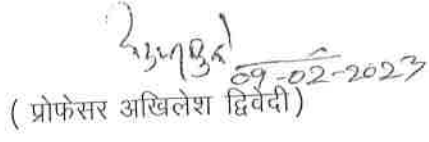 09-02-2023
( प्रोफेसर अखिलेश द्विवेदी)